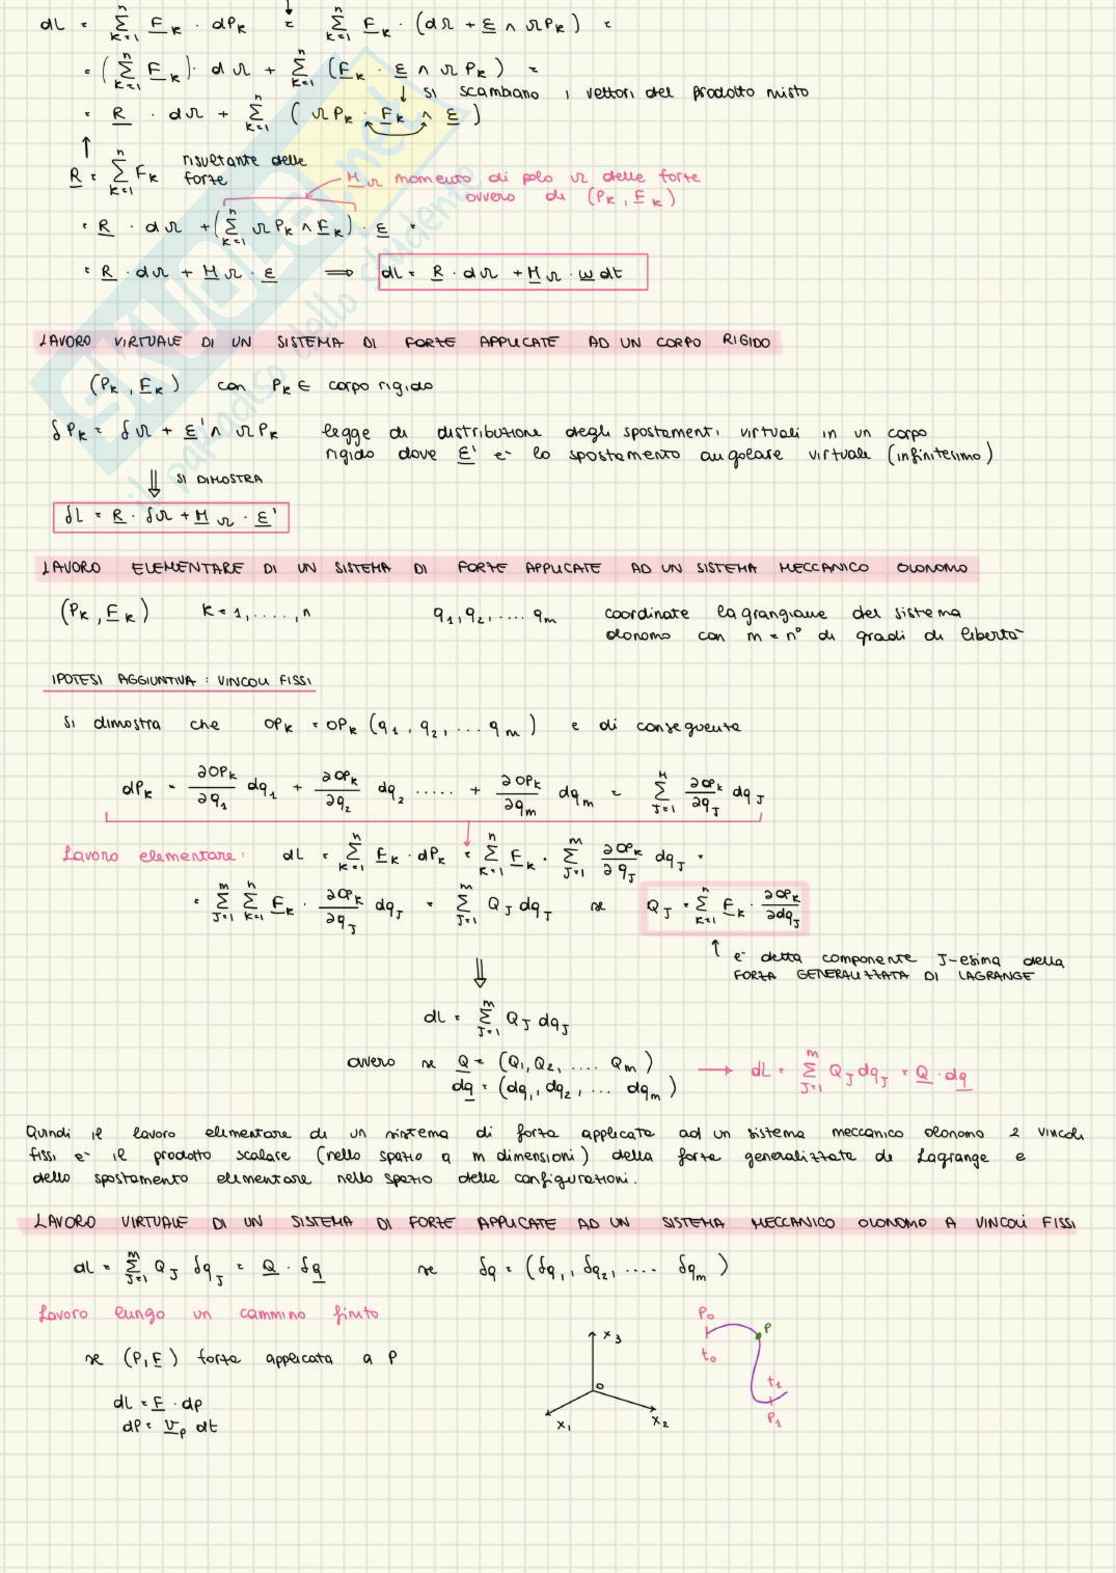 dL = Σ_{K=1}^{n} F_K · dP_K = Σ_{K=1}^{n} F_K · (dΩ + ε ∧ ΩP_K) =
= (Σ_{K=1}^{n} F_K) · dΩ + Σ_{K=1}^{n} (F_K · ε ∧ ΩP_K) =
↓ si scambiano i vettori del prodotto misto
= R · dΩ + Σ_{K=1}^{n} (ΩP_K · F_K ∧ ε)
↑
R = Σ_{K=1}^{n} F_K risultante delle forze
M_Ω momento di polo Ω delle forze
ovvero di (P_K, F_K)
= R · dΩ + (Σ_{K=1}^{n} ΩP_K ∧ F_K) · ε =
= R · dΩ + M_Ω · ε ⟹ dL = R · dΩ + M_Ω · ω dt
LAVORO VIRTUALE DI UN SISTEMA DI FORZE APPLICATE AD UN CORPO RIGIDO
(P_K, F_K) con P_K ∈ corpo rigido
δP_K = δΩ + ε' ∧ ΩP_K legge di distribuzione degli spostamenti virtuali in un corpo
rigido dove ε' è lo spostamento angolare virtuale (infinitesimo)
⇓ SI DIMOSTRA
δL = R · δΩ + M_Ω · ε'
LAVORO ELEMENTARE DI UN SISTEMA DI FORZE APPLICATE AD UN SISTEMA MECCANICO OLONOMO
(P_K, F_K) K = 1, ....., n q_1, q_2, .... q_m coordinate lagrangiane del sistema
olonomo con m = n° di gradi di libertà
IPOTESI AGGIUNTIVA : VINCOLI FISSI
Si dimostra che OP_K = OP_K (q_1, q_2, ... q_m) e di conseguenza
dP_K = ∂OP_K/∂q_1 dq_1 + ∂OP_K/∂q_2 dq_2 ..... + ∂OP_K/∂q_m dq_m = Σ_{J=1}^{M} ∂OP_K/∂q_J dq_J
Lavoro elementare: dL = Σ_{K=1}^{n} F_K · dP_K = Σ_{K=1}^{n} F_K · Σ_{J=1}^{m} ∂OP_K/∂q_J dq_J =
= Σ_{J=1}^{m} Σ_{K=1}^{n} F_K · ∂OP_K/∂q_J dq_J = Σ_{J=1}^{m} Q_J dq_J se Q_J = Σ_{K=1}^{n} F_K · ∂OP_K/∂dq_J
↑ è detta componente J-esima della
FORZA GENERALIZZATA DI LAGRANGE
⇓
dL = Σ_{J=1}^{m} Q_J dq_J
ovvero se Q = (Q_1, Q_2, .... Q_m) → dL = Σ_{J=1}^{m} Q_J dq_J = Q · dq
dq = (dq_1, dq_2, ... dq_m)
Quindi il lavoro elementare di un sistema di forze applicate ad un sistema meccanico olonomo a vincoli
fissi è il prodotto scalare (nello spazio a m dimensioni) della forza generalizzata di Lagrange e
dello spostamento elementare nello spazio delle configurazioni.
LAVORO VIRTUALE DI UN SISTEMA DI FORZE APPLICATE AD UN SISTEMA MECCANICO OLONOMO A VINCOLI FISSI
dL = Σ_{J=1}^{m} Q_J δq_J = Q · δq se δq = (δq_1, δq_2, .... δq_m)
Lavoro lungo un cammino finito
se (P, F) forza applicata a P
dL = F · dP
dP = v_P dt
x_3
O
x_1
x_2
P_0
t_0
P
t_1
P_1
SKUOLA.net
il paradiso dello studente